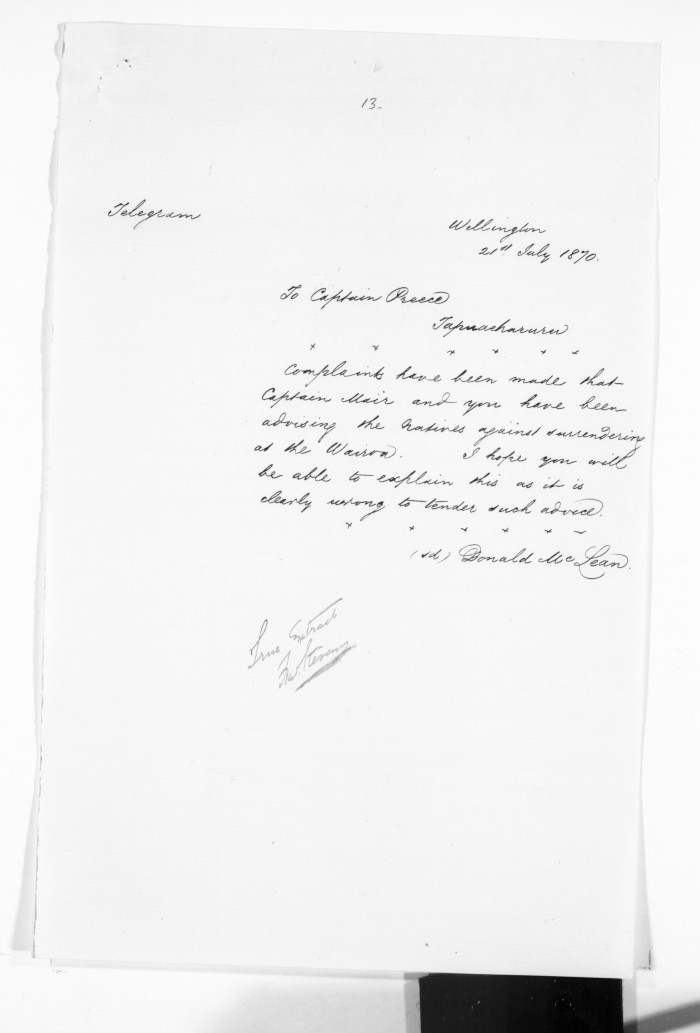 13.
Telegram
Wellington
21st July 1870.
To Captain Preece
Tapuaeharuru
x x x x x x
Complaints have been made that
Captain Mair and you have been
advising the Natives against surrendering
at the Wairoa. I hope you will
be able to explain this as it is
clearly wrong to tender such advice.
x x x x x x
(sd) Donald McLean.
True Extract
Fw. Stevens